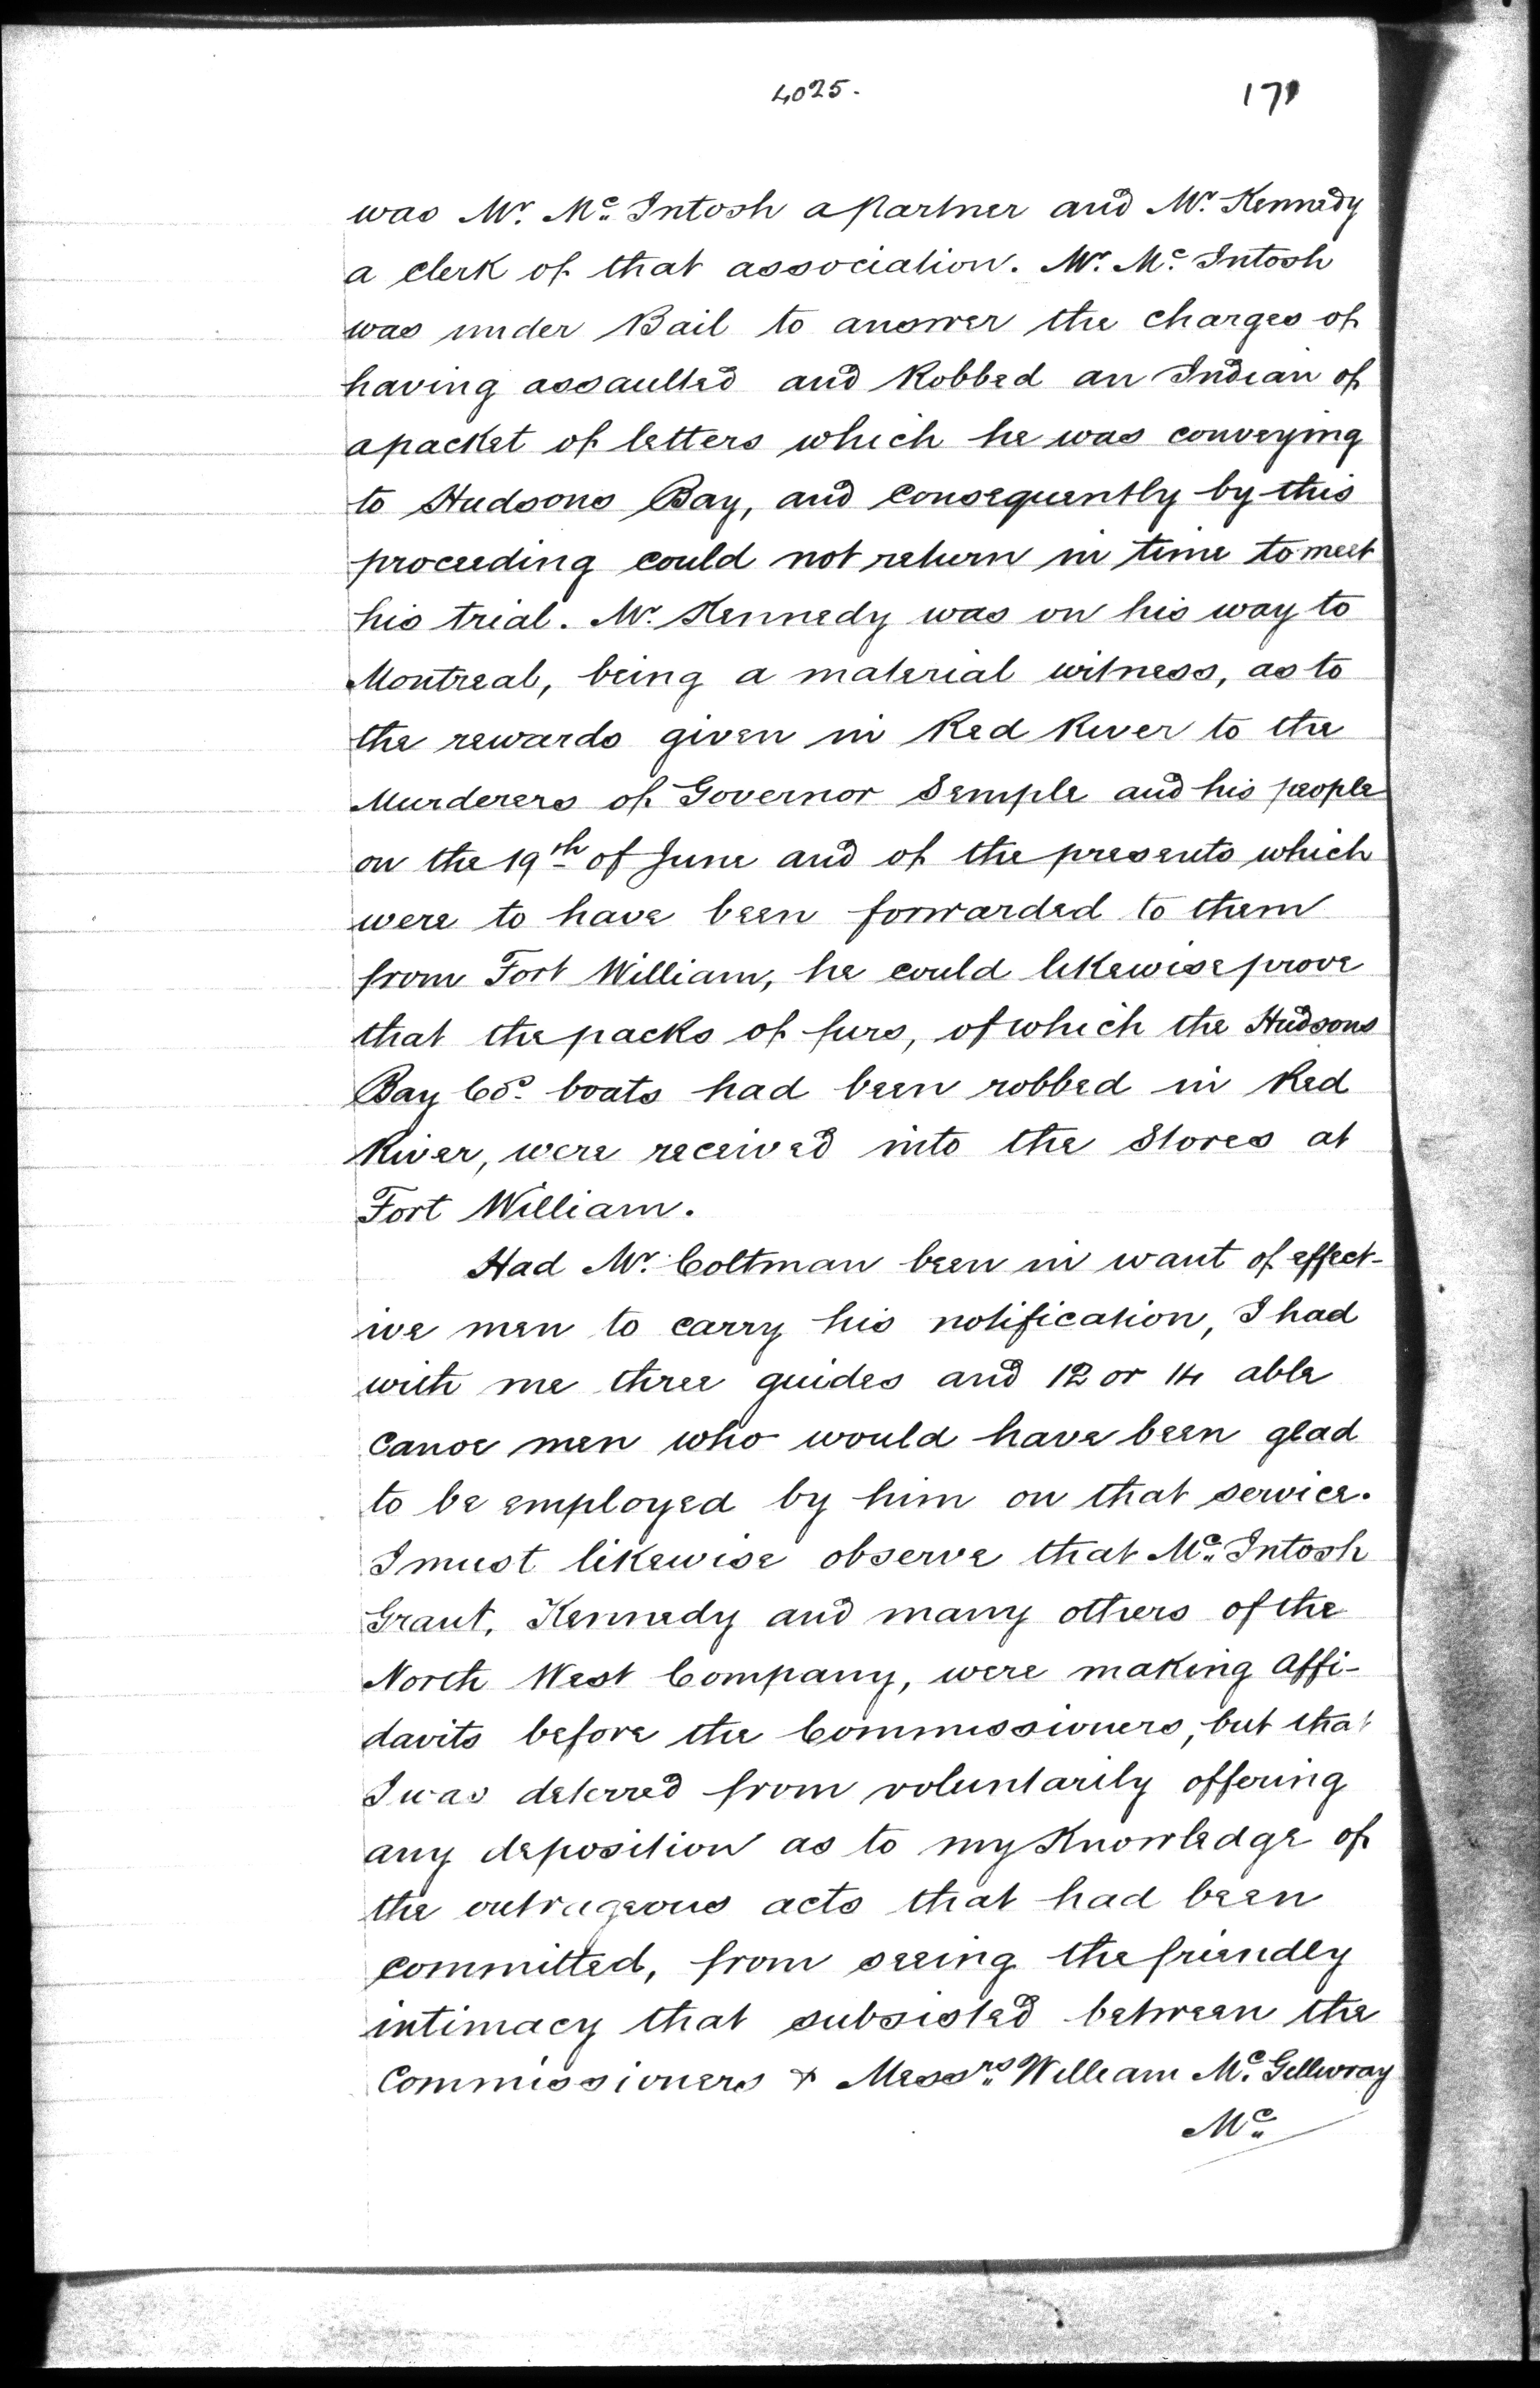 4025.
171
was Mr. Mc. Intosh a partner and Mr. Kennedy
a clerk of that association. Mr. Mc. Intosh
was under Bail to answer the charges of
having assaulted and Robbed an Indian of
a packet of letters which he was conveying
to Hudsons Bay, and consequently by this
proceeding could not return in time to meet
his trial. Mr. Kennedy was on his way to
Montreal, being a material witness, as to
the rewards given in Red River to the
Murderers of Governor Semple and his people
on the 19th of June and of the presents which
were to have been forwarded to them
from Fort William, he could likewise prove
that the packs of furs, of which the Hudsons
Bay Co. boats had been robbed in Red
River, were received into the Stores at
Fort William.
Had Mr. Coltman been in want of effect-
ive men to carry his notification, I had
with me three guides and 12 or 14 able
Canoe men who would have been glad
to be employed by him on that service.
I must likewise observe that Mc. Intosh
Grant, Kennedy and many others of the
North West Company, were making affi-
davits before the Commissioners, but that
I was deterred from voluntarily offering
any deposition as to my Knowledge of
the outrageous acts that had been
committed, from seeing the friendly
intimacy that subsisted between the
Commissioners & Messrs. William Mc. Gillivray
Mc.